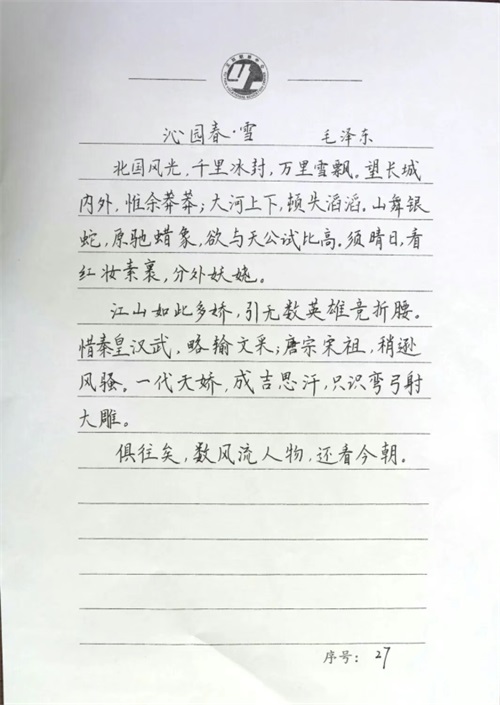 沁园春·雪 毛泽东
北国风光,千里冰封,万里雪飘。望长城
内外,惟余莽莽;大河上下,顿失滔滔。山舞银
蛇,原驰蜡象,欲与天公试比高。须晴日,看
红妆素裹,分外妖娆。
江山如此多娇,引无数英雄竞折腰。
惜秦皇汉武,略输文采;唐宗宋祖,稍逊
风骚。一代天娇,成吉思汗,只识弯弓射
大雕。
俱往矣,数风流人物,还看今朝.
序号:27